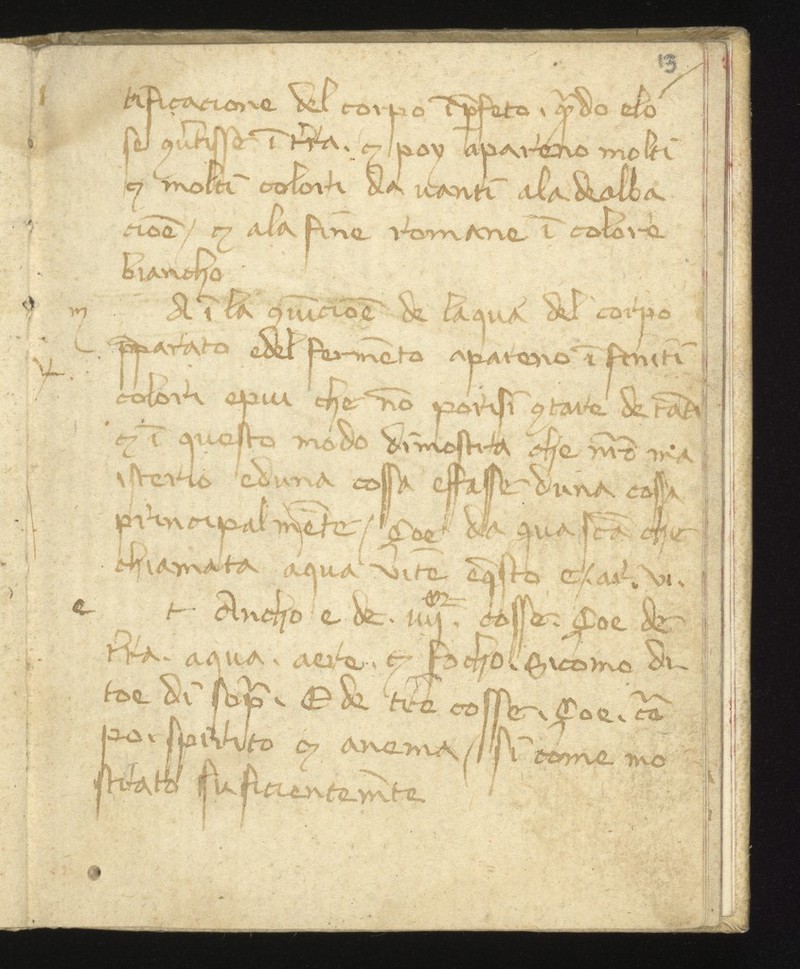 13
tificacione del corpo ĩp̃feto. q̃do elo
se ꝯũtisse ĩ tr̃ra. ⁊ poy apareno molti
⁊ molti colori da uanti ala dealba
cioẽ / ⁊ ala fine romane ĩ colore
biancho
A ĩ la ꝯũcioẽ de laqua del corpo
p̃parato edel fermẽto apareno ĩ finiti
colori epiu che nõ porisi ꝯtare de tãti
⁊ ĩ questo modo dimostra che nr̃o ma
isterio eduna cossa effasse duna cossa
principalmẽte / Çoe da qua scã che
chiamata aqua vite eq̃sto e / ar. vi.
e t Ancho e de. iiij. cosse. Çoe de
tr̃ra. aqua. aere. ⁊ focho. sicomo di
toe di sop̃. E de tre cosse. Çoe. cõ
po. spirito ⁊ anema / si come mo
strato suficientem̃te